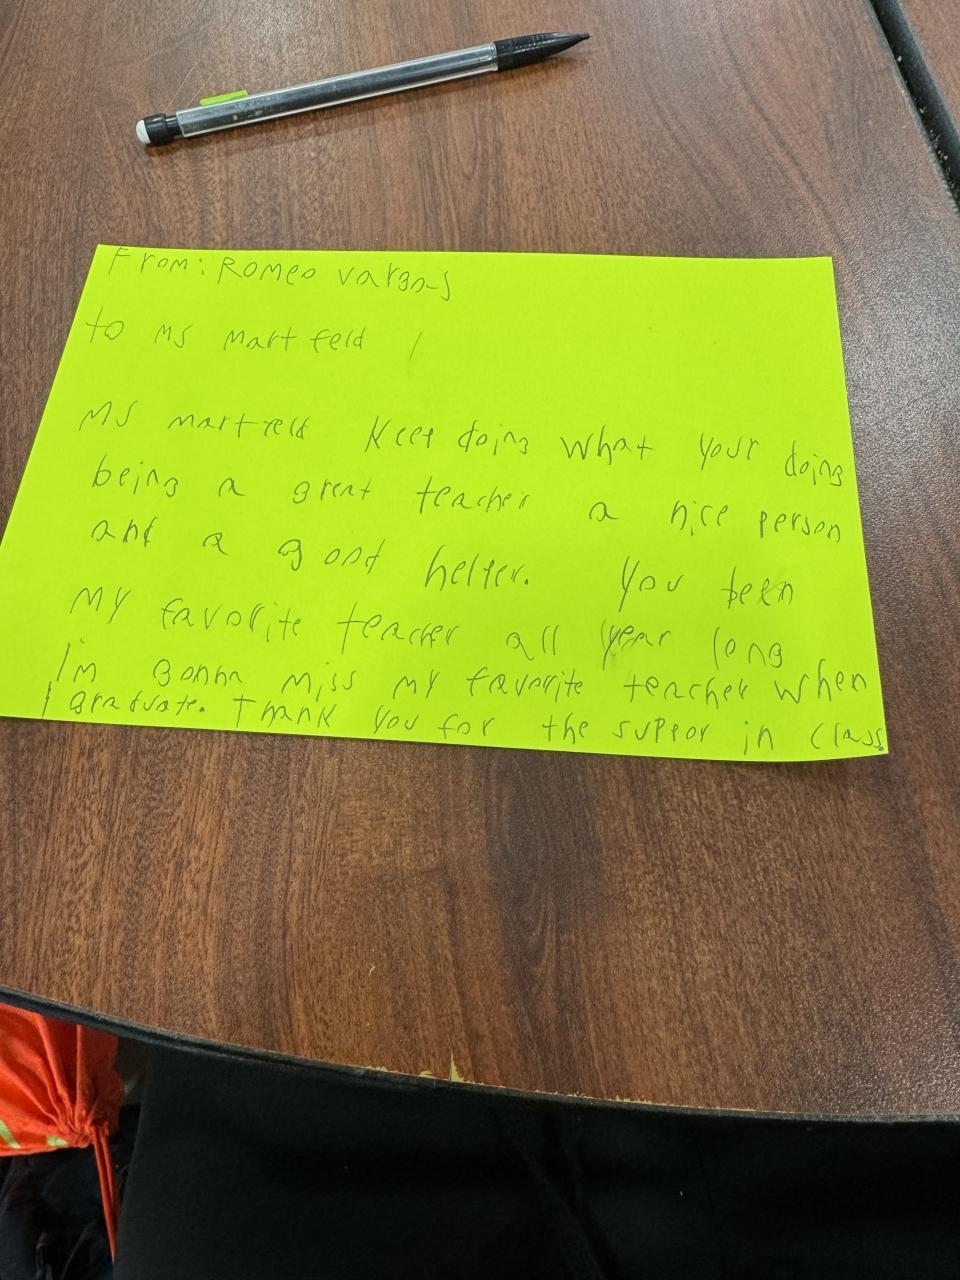 From: Romeo vargas
to Ms Martfeld
Ms martfeld Keep doing what your doing
being a great teacher a nice person
and a good helper. You been
My favorite teacher all year long
i'm gonna miss my favorite teacher when
I graduate. Thank you for the suppor in class.